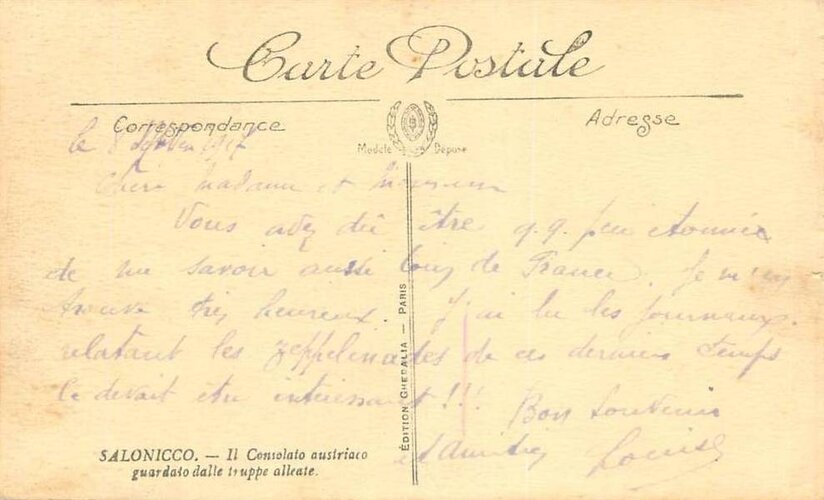 Carte Postale
Correspondance
Adresse
Modèle Déposé
le 8 1917
Chère Madame et Monsieur
Vous avez dû être q.q. peu étonnée
de me savoir aussi loin de France. Je m'en
trouve très heureux. J'ai lu les journaux
relatant les zeppelinades de ces derniers temps
Ce devait être intéressant!!!
Bon Souvenir
et Amitiés
Louise
ÉDITION GHEDALIA — PARIS
SALONICCO. — Il Consolato austriaco
guardato dalle truppe alleate.